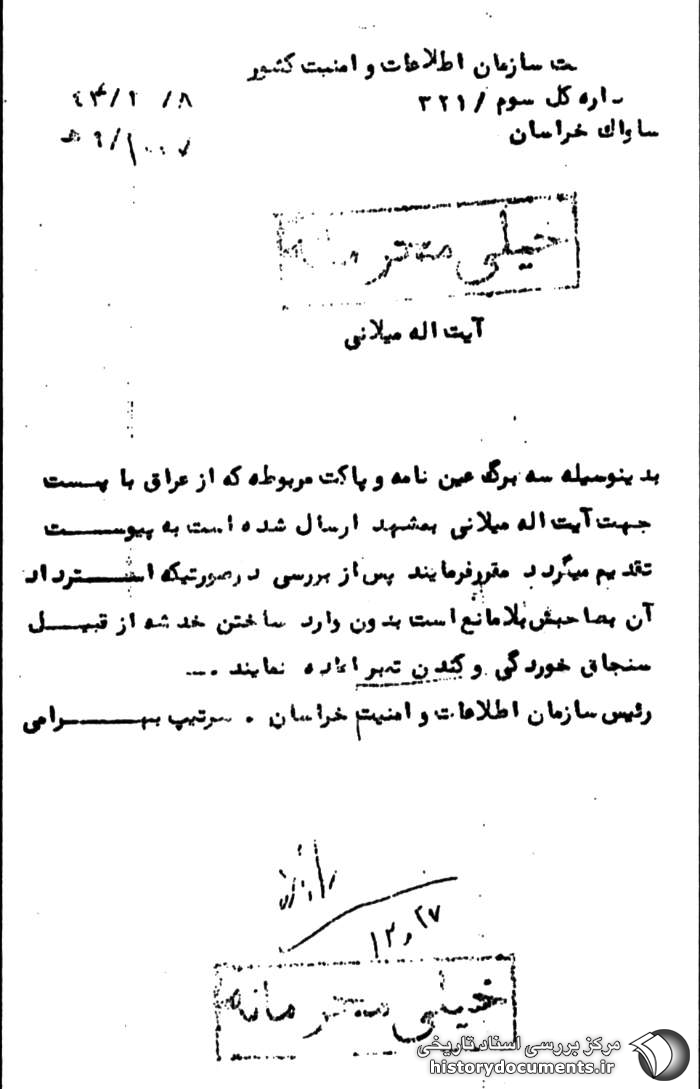 ـت سازمان اطلاعات و امنیت کشور
ـاره کل سوم / ۳۲۱
۴۳/۱ /۸
ساواک خراسان
خیلی محرمانه
آیت اله میلانی
بدینوسیله سه برگ عین نامه و پاکت مربوطه که از عراق با پست
جهت آیت اله میلانی بمشهد ارسال شده است به پیوست
تقدیم میگردد مقررفرمایند پس از بررسی درصورتیکه استرداد
آن بصاحبش بلامانع است بدون وارد ساختن خدشه از قبیل
سنجاق خوردگی و کندن تمبر اعاده نمایند ...
رئیس سازمان اطلاعات و امنیت خراسان . سرتیپ بهرامی
۱۲٫۲۷
خیلی محرمانه
مرکز بررسی اسناد تاریخی
historydocuments.ir